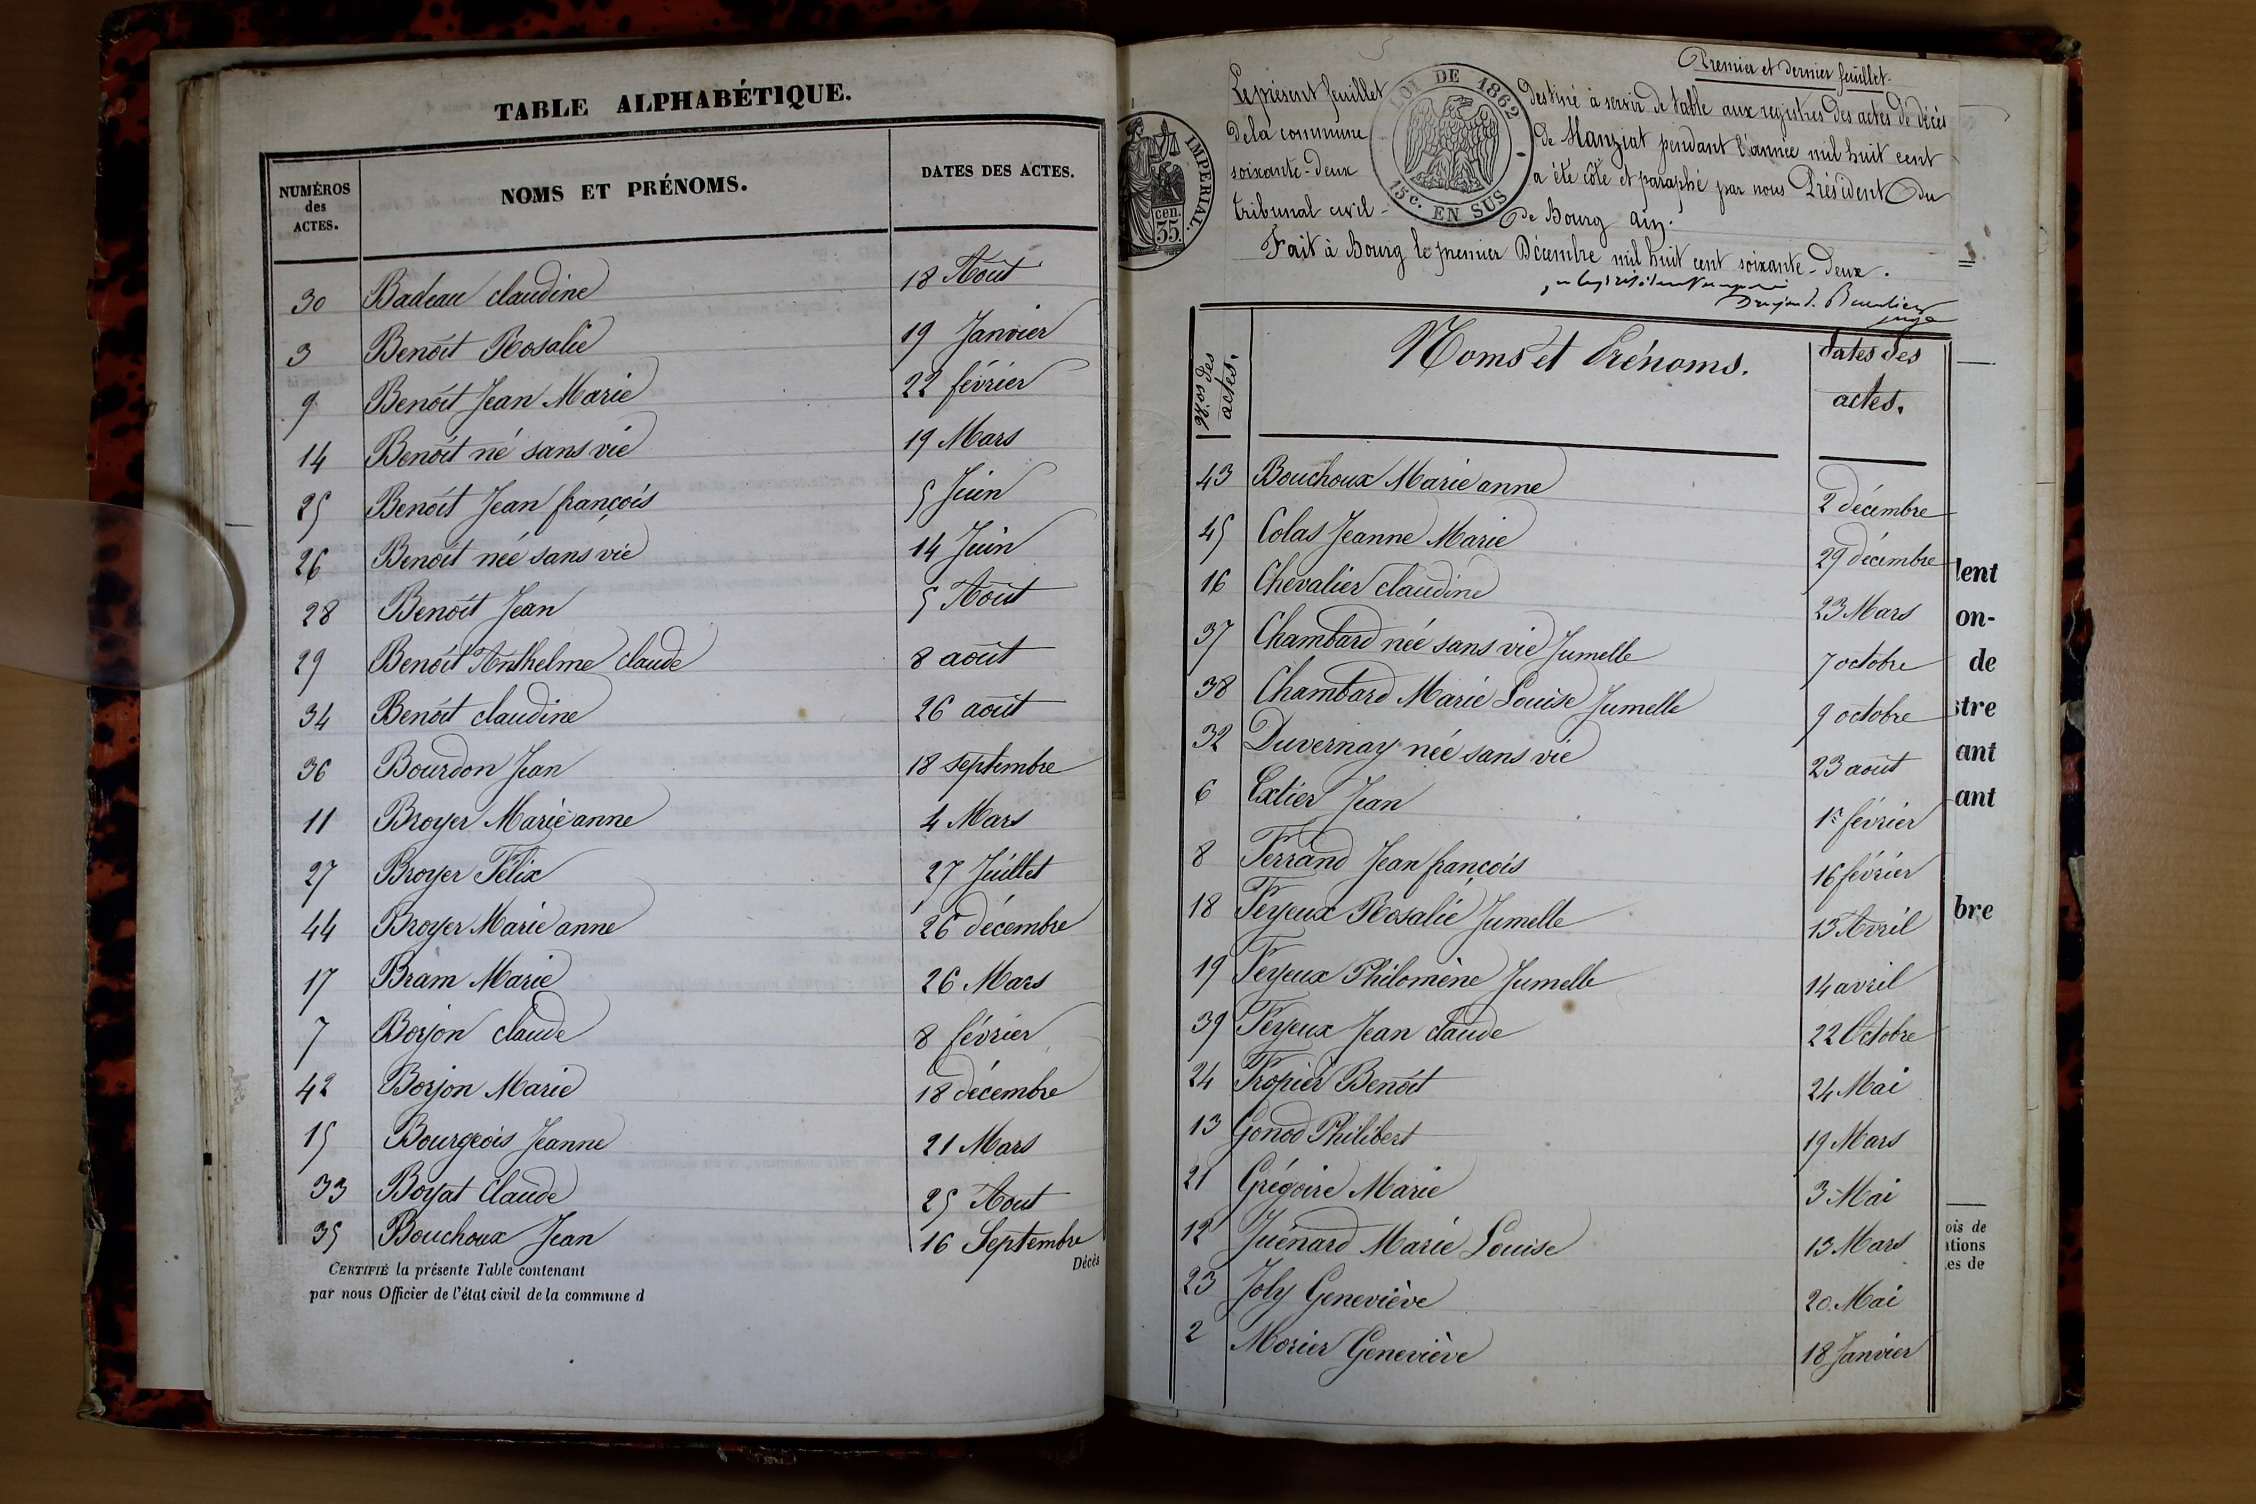 TABLE ALPHABÉTIQUE.
NUMÉROS des ACTES. NOMS ET PRÉNOMS. DATES DES ACTES.
30 Badeau claudine 18 Août
3 Benoît Rosalie 19 Janvier
9 Benoît Jean Marie 22 février
14 Benoît né sans vie 19 Mars
25 Benoît Jean françois 5 Juin
26 Benoît née sans vie 14 Juin
28 Benoît Jean 5 Août
29 Benoît Anthelme claude 8 août
34 Benoît claudine 26 août
36 Bourdon Jean 18 septembre
11 Broyer Marie anne 4 Mars
27 Broyer Félix 27 Juillet
44 Broyer Marie anne 26 décembre
17 Bram Marie 26 Mars
7 Borjon claude 8 février
42 Borjon Marie 18 décembre
15 Bourgeois Jeanne 21 Mars
33 Boyat Claude 25 Aout
35 Bouchoux Jean 16 Septembre
Décès
CERTIFIÉ la présente Table contenant
par nous Officier de l'état civil de la commune d
Premier et dernier feuillet.
Le présent feuillet destiné à servir de table aux registres des actes de décès
de la commune de Manziat pendant l'année mil huit cent
soixante-deux a été côté et paraphé par nous Président du
tribunal civil de Bourg Ain.
Fait à Bourg le premier Décembre mil huit cent soixante-deux.
juge
LOI DE 1862
15 c. EN SUS
IMPERIAL.
cen.
35.
Nos des actes. Noms et Prénoms. dates des actes.
43 Bouchoux Marie anne 2 décembre
45 Colas Jeanne Marie 29 décembre
16 Chevalier claudine 23 Mars
37 Chambard née sans vie Jumelle 7 octobre
38 Chambard Marie Louise Jumelle 9 octobre
32 Duvernay née sans vie 23 août
6 Extier Jean 1er février
8 Ferrand Jean françois 16 février
18 Feyeux Rosalie Jumelle 13 Avril
19 Feyeux Philomène Jumelle 14 avril
39 Feyeux Jean claude 22 Octobre
24 Fropier Benoît 24 Mai
13 Gonod Philibert 19 Mars
21 Grégoire Marie 3 Mai
12 Juénard Marie Louise 13 Mars
23 Joly Geneviève 20 Mai
2 Morier Geneviève 18 Janvier
lent
on-
de
stre
ant
ant
bre
ois de
ations
es de